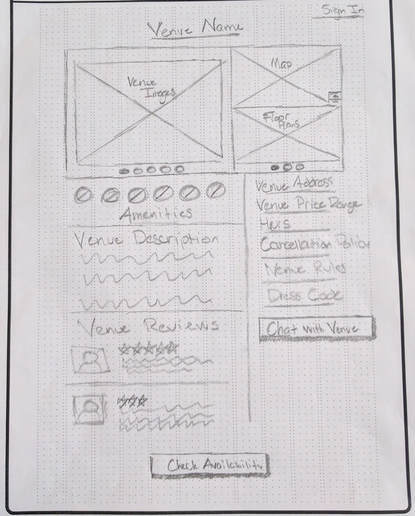 Sign In
Venue Name
Venue
Images
Map
Floor
Plans
Amenities
Venue Description
Venue Reviews
Venue Address
Venue Price Range
Hrs
Cancellation Policy
Venue Rules
Dress Code
Chat with Venue
Check Availability